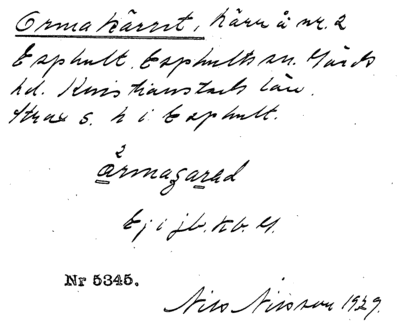 Ormakärret, Kärr å nr. 2
Esphult. Esphults sn. Gärds
hd. Kristianstads län.
Strax S. h i Esphult.
2
årmagarad
Ej i jb. Kb. G.
Nr 5345.
Nils Nilsson 1929.